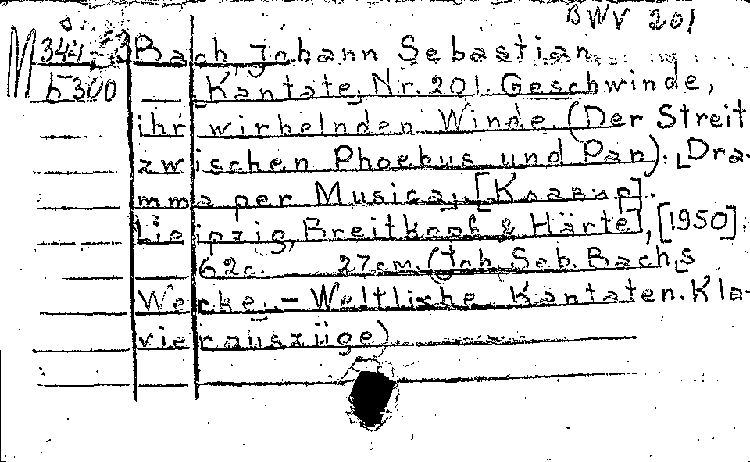 BWV 201
M Bach, Johann Sebastian
Б300 Kantate, Nr. 201. Geschwinde,
ihr wirbelnden Winde (Der Streit
zwischen Phoebus und Pan). Dra-
mma per Musica, [Клавир].
Leipzig, Breitkopf & Härtel, [1950].
62 c. 27 cm. (Joh. Seb. Bachs
Werke. - Weltliche Kantaten. Kla-
vierauszüge)